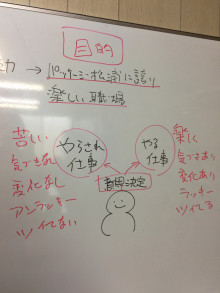 目的
→ パッケージ松浦に誇り
楽しい職場
苦しい
気づきなし
変化なし
アンラッキー
ツイてない
やらされ
仕事
やる
仕事
意思決定
楽しく
気づきあり
変化あり
ラッキー
ツイてる